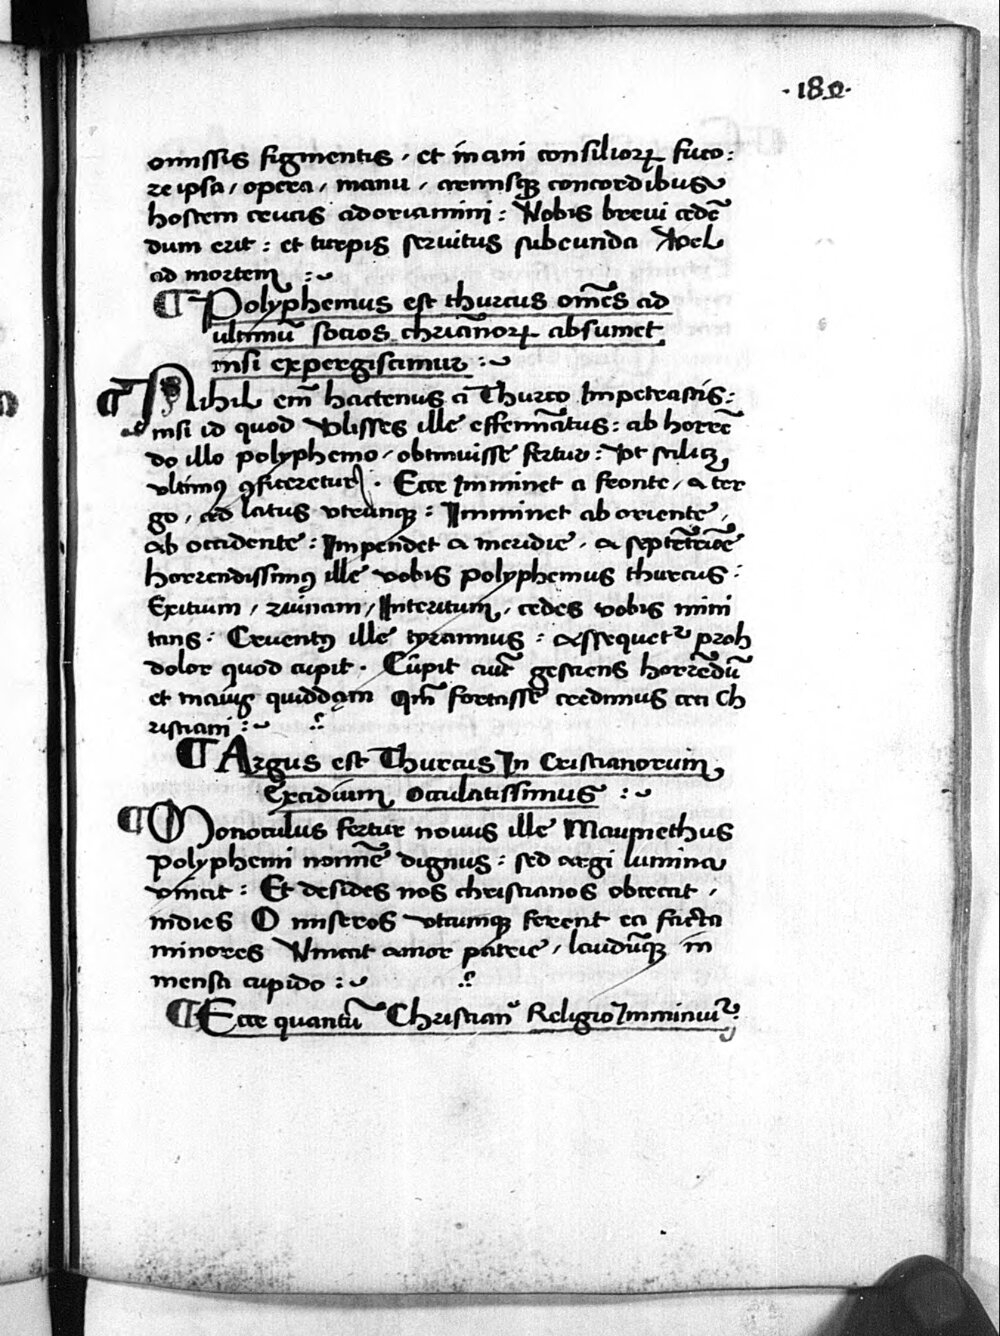 ·182·
omissis figmentis, et inani consiliorꝝ fuco:
re ipsa, opera, manu, armisqꝫ concordibus
hostem crucis adoriamini: Nobis brevi cedē
dum erit: et turpis servitus subeunda vel
ad mortem :~
¶ Polyphemus est thurcus om̄es ad
ultimū socios chrianorꝝ absumet
nisi expergiscimur :~
¶ Nihil em̄ hactenus a Thurco Impetrastis:
nisi id quod Ulisses ille effemīatus: ab horrē
do illo polyphemo, obtinuisse fertur: Ut scilicꝫ
ultimꝰ ꝯficeretur. Ecce Imminet a fronte, a ter
go, ad latus utrumqꝫ: Imminet ab oriente,
ab occidente: Impendet a meridie, a septētrioē
horrendissimꝰ ille vobis polyphemus thurcus:
Exitium, ruinam, Interitum, cedes vobis mini
tans: Cruentꝰ ille tyrannus: assequetʳ proh
dolor quod cupit. Cūpit aut̄ gestiens horrēdū
et maius quiddam qm̄ fortasse credimus ceci Ch
ristiani :~
¶ Argus est Thurcus In Cristianorum
Excidium oculatissimus :~
¶ Monoculus fertur novus ille Maumethus
polyphemi nomīe dignus: sed argi lumina
vincit: Et desides nos christianos obcecat,
indies O miseros utcumqꝫ ferent ea facta
minores Vincat amor patrie, laudūqꝫ in
mensa cupido :~
¶ Ecce quantū Christianᵃ Religio Imminuiʳ